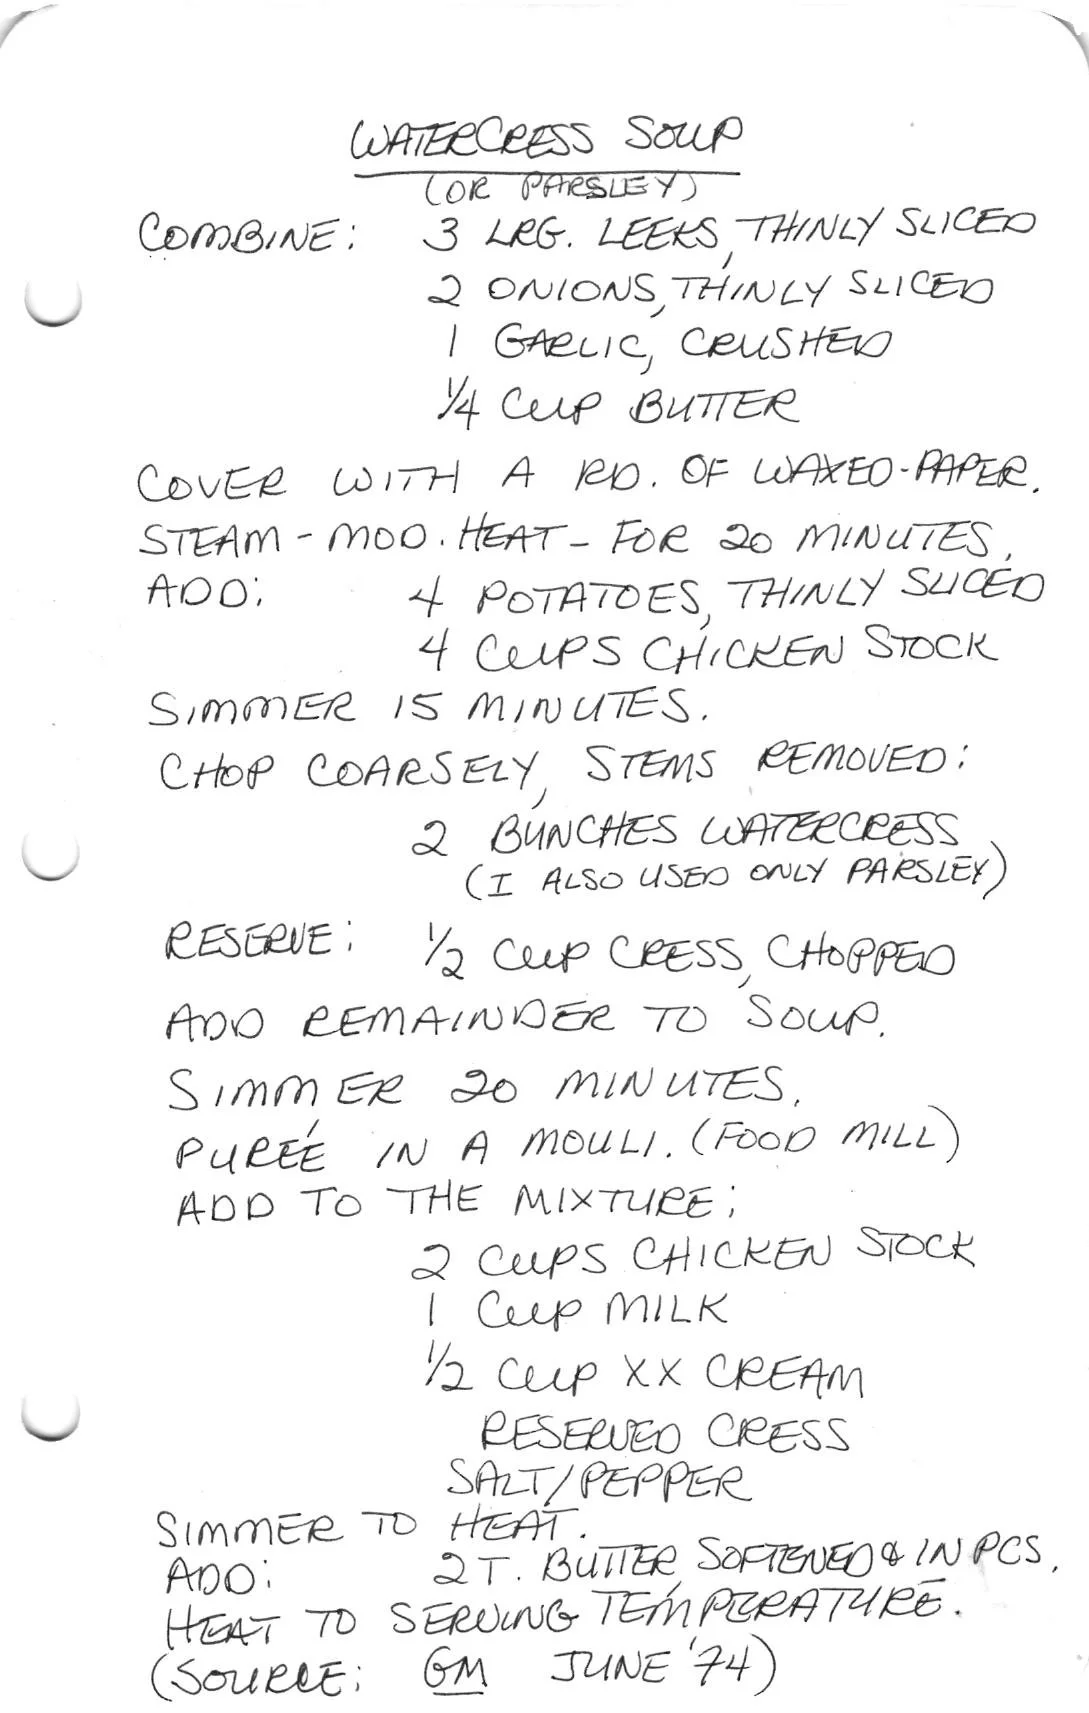 WATERCRESS SOUP
(OR PARSLEY)
COMBINE: 3 LRG. LEEKS, THINLY SLICED
2 ONIONS, THINLY SLICED
1 GARLIC, CRUSHED
1/4 CUP BUTTER
COVER WITH A RD. OF WAXED-PAPER.
STEAM - MOD. HEAT - FOR 20 MINUTES.
ADD: 4 POTATOES, THINLY SLICED
4 CUPS CHICKEN STOCK
SIMMER 15 MINUTES.
CHOP COARSELY, STEMS REMOVED:
2 BUNCHES WATERCRESS
(I ALSO USED ONLY PARSLEY)
RESERVE: 1/2 CUP CRESS, CHOPPED
ADD REMAINDER TO SOUP.
SIMMER 20 MINUTES.
PURÉE IN A MOULI. (FOOD MILL)
ADD TO THE MIXTURE:
2 CUPS CHICKEN STOCK
1 CUP MILK
1/2 CUP XX CREAM
RESERVED CRESS
SALT/PEPPER
SIMMER TO HEAT.
ADD: 2 T. BUTTER SOFTENED & IN PCS.
HEAT TO SERVING TEMPERATURE.
(SOURCE: GM JUNE '74)